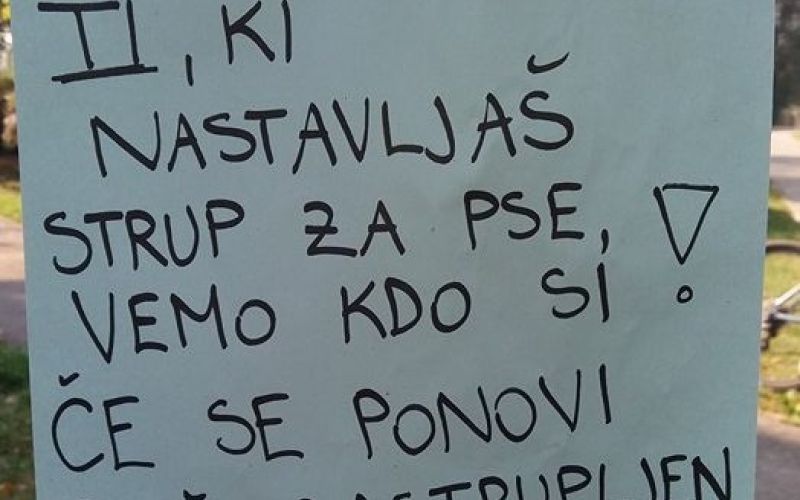 TI, KI
NASTAVLJAŠ
STRUP ZA PSE,
VEMO KDO SI!
ČE SE PONOVI